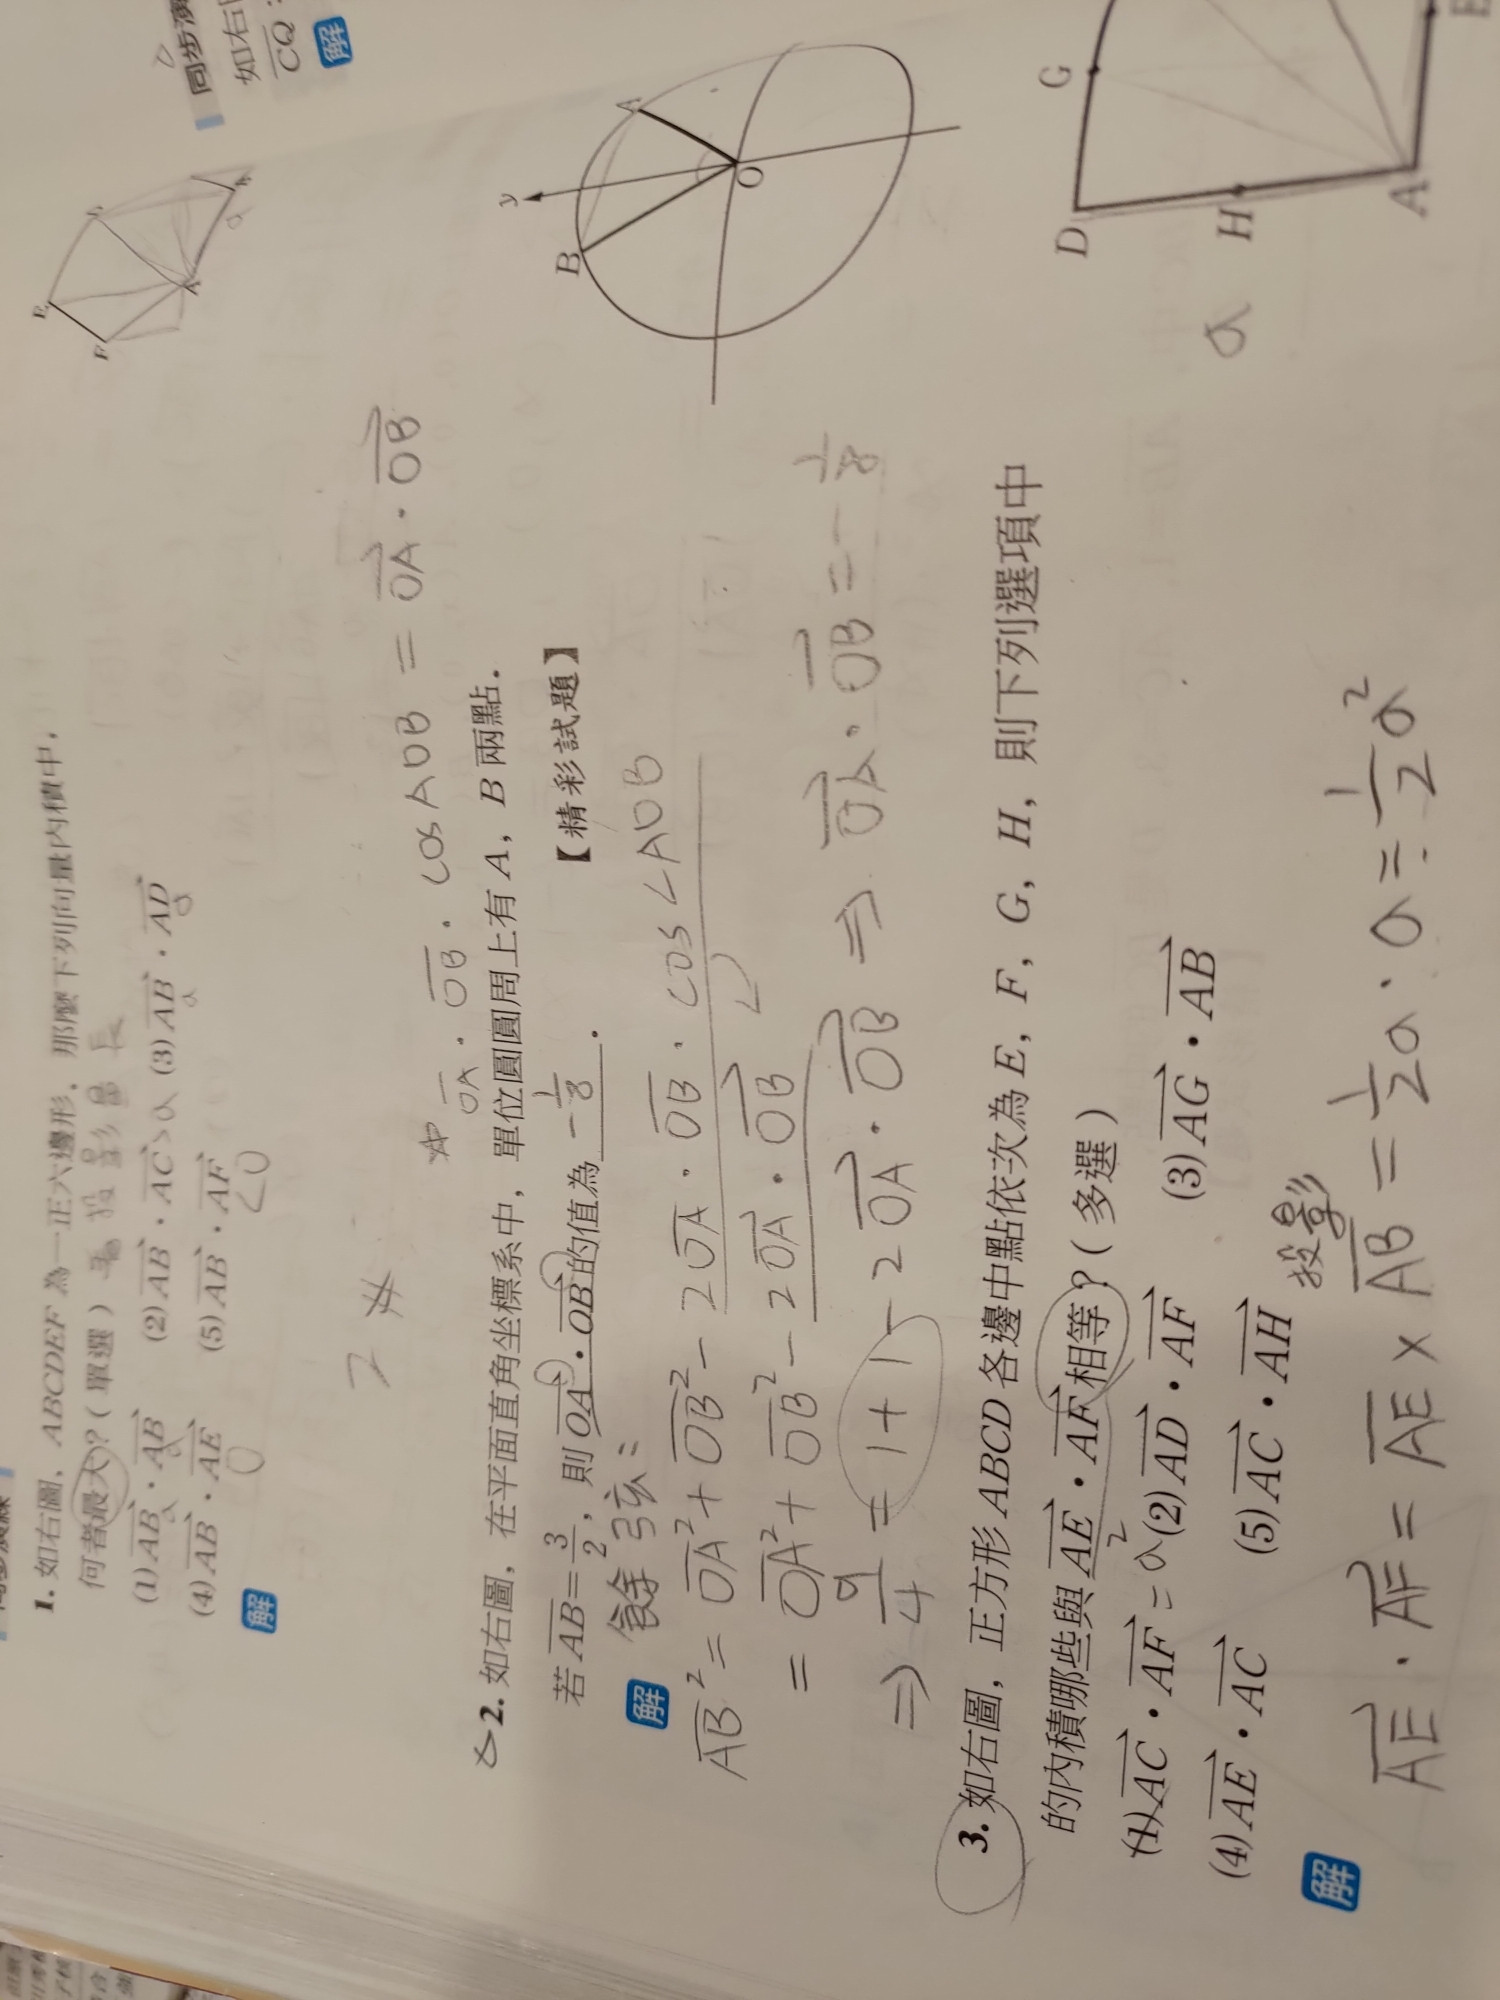 1. 如右圖，ABCDEF 為一正六邊形，那麼下列向量內積中，
何者最大？（單選） 投影量長
(1) AB · AB (2) AB · AC > a (3) AB · AD
a a a a
(4) AB · AE (5) AB · AF
0 <0
解
E
F
A
a
2 #
OA · OB · cos AOB = OA · OB
2. 如右圖，在平面直角坐標系中，單位圓圓周上有 A，B 兩點．
若 AB = 3/2，則 OA · OB 的值為 -1/8 ．
【精彩試題】
解
餘弦：
AB² = OA² + OB² - 2 OA · OB · cos ∠AOB
= OA² + OB² - 2 OA · OB
⇒ 9/4 = 1 + 1 - 2 OA · OB ⇒ OA · OB = -1/8
y
B
A
O
3. 如右圖，正方形 ABCD 各邊中點依次為 E，F，G，H，則下列選項中
的內積哪些與 AE · AF 相等？（多選）
(1) AC · AF = a² (2) AD · AF (3) AG · AB
(4) AE · AC (5) AC · AH
解
投影
AE · AF = AE × AB = 1/2 a · a = 1/2 a²
D
G
H
A
E
a
同步演
如右
CQ
解